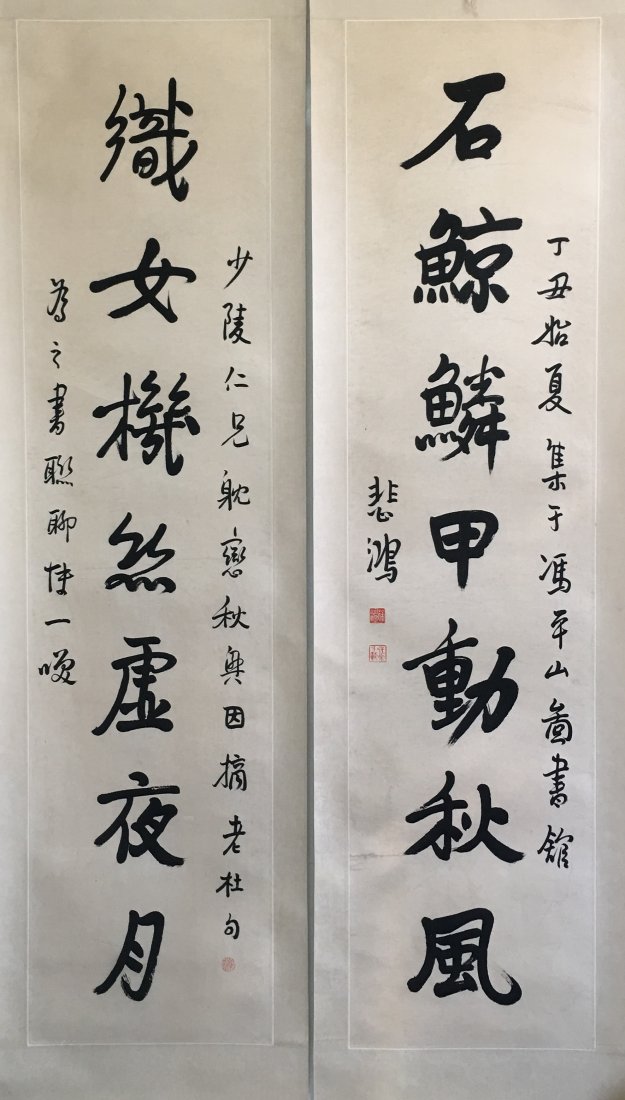 丁丑始夏集于馮平山圖書館
石鯨鱗甲動秋風
悲鴻
少陵仁兄耽戀秋興因摘老杜句
織女機絲虛夜月
為之書聯聊博一噱